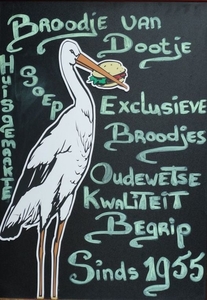 Broodje van
Dootje
Huisgemaakte
Soep
Exclusieve
Broodjes
Oudewetse
Kwaliteit
Begrip
Sinds 1955